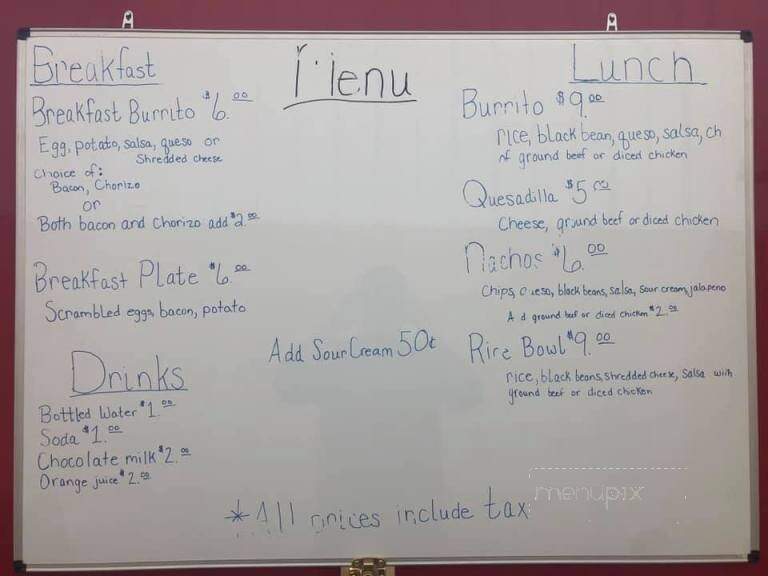 Menu
Breakfast
Breakfast Burrito $6.00
Egg, potato, salsa, queso or
Shredded cheese
choice of:
Bacon, Chorizo
or
Both bacon and Chorizo add $2.00
Breakfast Plate $6.00
Scrambled eggs, bacon, potato
Drinks
Bottled Water $1.00
Soda $1.00
Chocolate milk $2.00
Orange juice $2.00
Add Sour Cream 50¢
Lunch
Burrito $9.00
rice, black bean, queso, salsa, ch
of ground beef or diced chicken
Quesadilla $5.00
Cheese, ground beef or diced chicken
Nachos $6.00
Chips, queso, black beans, salsa, sour cream, jalapeno
Add ground beef or diced chicken $2.00
Rice Bowl $9.00
rice, black beans, shredded cheese, salsa with
ground beef or diced chicken
*All prices include tax
menupix